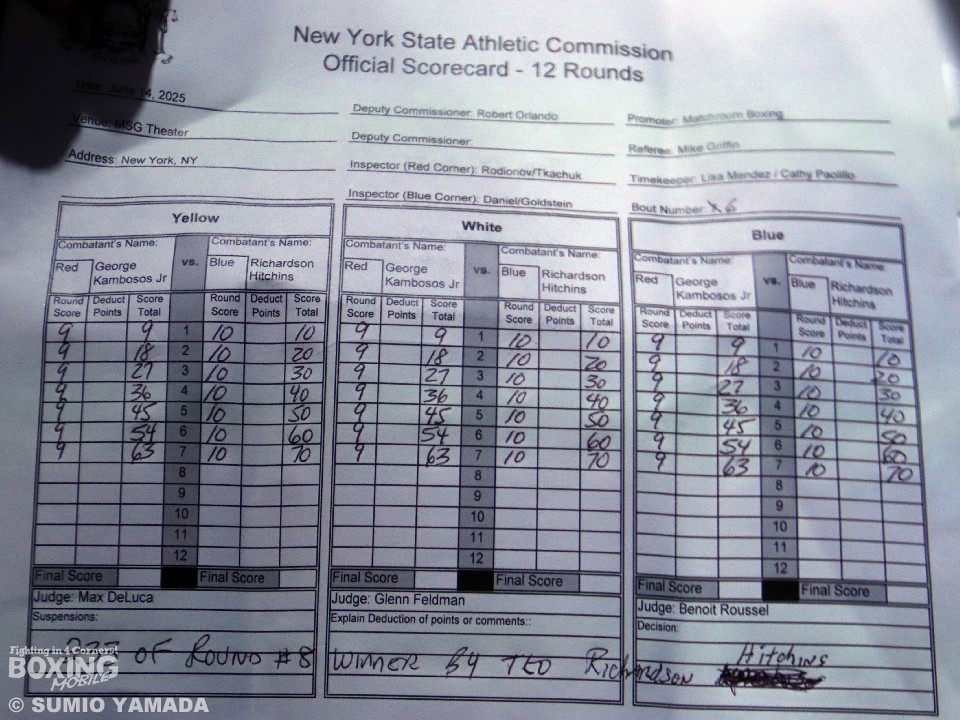 New York State Athletic Commission
Official Scorecard - 12 Rounds
Date: June 14, 2025
Venue: MSG Theater
Address: New York, NY
Deputy Commissioner: Robert Orlando
Deputy Commissioner:
Inspector (Red Corner): Rodionov/Tkachuk
Inspector (Blue Corner): Daniel/Goldstein
Promoter: Matchroom Boxing
Referee: Mike Griffin
Timekeeper: Lisa Mendez / Cathy Paolillo
Bout Number: 6
Yellow
Combatant's Name: vs. Combatant's Name:
Red George Kambosos Jr Blue Richardson Hitchins
Round Score Deduct Points Score Total Round Score Deduct Points Score Total
9 9 1 10 10
9 18 2 10 20
9 27 3 10 30
9 36 4 10 40
9 45 5 10 50
9 54 6 10 60
9 63 7 10 70
8
9
10
11
12
Final Score Final Score
Judge: Max DeLuca
Suspensions:
White
Combatant's Name: vs. Combatant's Name:
Red George Kambosos Jr Blue Richardson Hitchins
Round Score Deduct Points Score Total Round Score Deduct Points Score Total
9 9 1 10 10
9 18 2 10 20
9 27 3 10 30
9 36 4 10 40
9 45 5 10 50
9 54 6 10 60
9 63 7 10 70
8
9
10
11
12
Final Score Final Score
Judge: Glenn Feldman
Explain Deduction of points or comments::
Blue
Combatant's Name: vs. Combatant's Name:
Red George Kambosos Jr Blue Richardson Hitchins
Round Score Deduct Points Score Total Round Score Deduct Points Score Total
9 9 1 10 10
9 18 2 10 20
9 27 3 10 30
9 36 4 10 40
9 45 5 10 50
9 54 6 10 60
9 63 7 10 70
8
9
10
11
12
Final Score Final Score
Judge: Benoit Roussel
Decision:
OF ROUND #8 WINNER BY TKO Richardson Hitchins
Fighting in 4 Corners!
BOXING
MOBILE
© SUMIO YAMADA